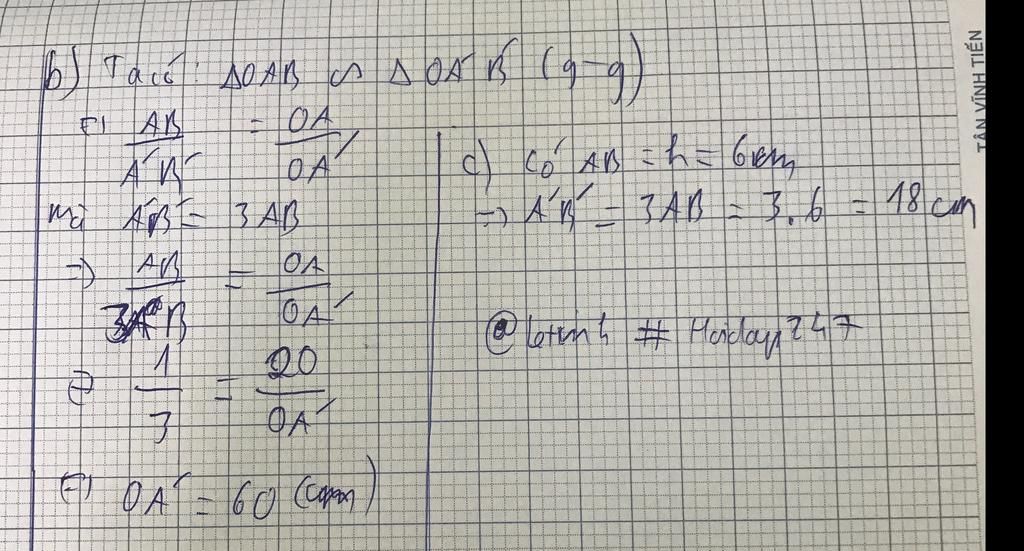 b) Ta có: ΔOAB ∽ ΔOA'B' (g-g)
⇔ AB/A'B' = OA/OA'
Mà A'B' = 3AB
⇒ AB/3AB = OA/OA'
⇔ 1/3 = 20/OA'
⇔ OA' = 60 (cm)
c) Có AB = h = 6cm
→ A'B' = 3AB = 3.6 = 18 cm
# Hoidap247
TÂN VĨNH TIẾN